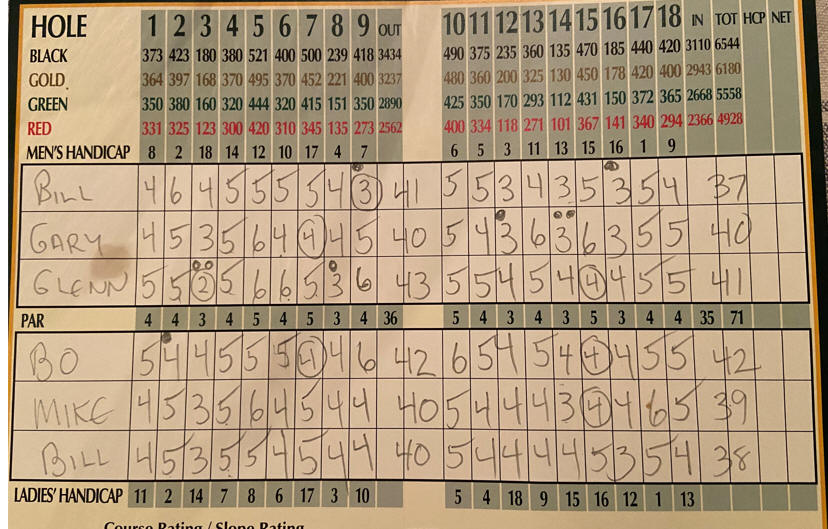 HOLE 1 2 3 4 5 6 7 8 9 OUT 10 11 12 13 14 15 16 17 18 IN TOT HCP NET
BLACK 373 423 180 380 521 400 500 239 418 3434 490 375 235 360 135 470 185 440 420 3110 6544
GOLD 364 397 168 370 495 370 452 221 400 3237 480 360 200 325 130 450 178 420 400 2943 6180
GREEN 350 380 160 320 444 320 415 151 350 2890 425 350 170 293 112 431 150 372 365 2668 5558
RED 331 325 123 300 420 310 345 135 273 2562 400 334 118 271 101 367 141 340 294 2366 4928
MEN'S HANDICAP 8 2 18 14 12 10 17 4 7 6 5 3 11 13 15 16 1 9
BILL 4 6 4 5 5 5 5 4 3 41 5 5 3 4 3 5 3 5 4 37
GARY 4 5 3 5 6 4 4 4 5 40 5 4 3 6 3 6 3 5 5 40
GLENN 5 5 2 5 6 6 5 3 6 43 5 5 4 5 4 4 4 5 5 41
PAR 4 4 3 4 5 4 5 3 4 36 5 4 3 4 3 5 3 4 4 35 71
BO 5 4 4 5 5 5 4 4 6 42 6 5 4 5 4 4 4 5 5 42
MIKE 4 5 3 5 6 4 5 4 4 40 5 4 4 4 3 4 4 6 5 39
BILL 4 5 3 5 5 4 5 4 4 40 5 4 4 4 4 5 3 5 4 38
LADIES' HANDICAP 11 2 14 7 8 6 17 3 10 5 4 18 9 15 16 12 1 13
Course Rating / Slope Rating